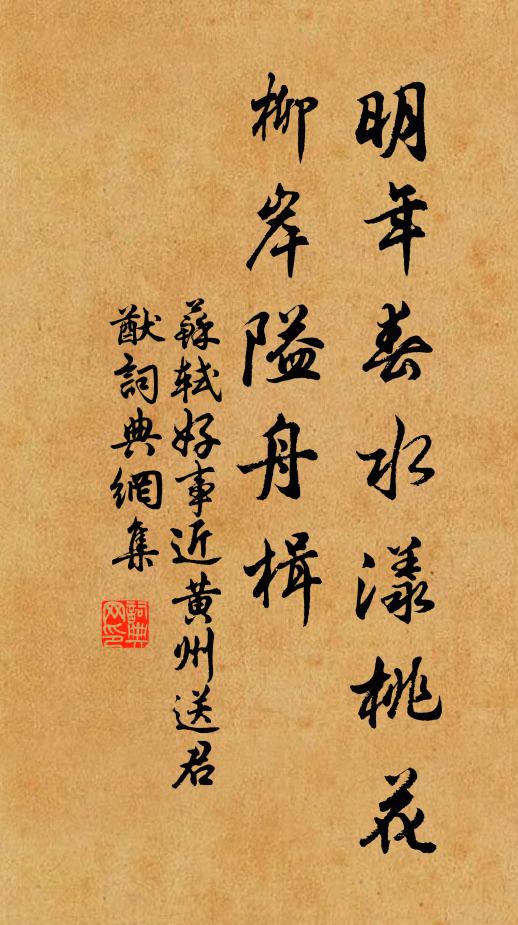 明年春水漾桃花
柳岸隘舟楫
蘇軾好事近黄州送君
猷詞典網集
詞典
网印